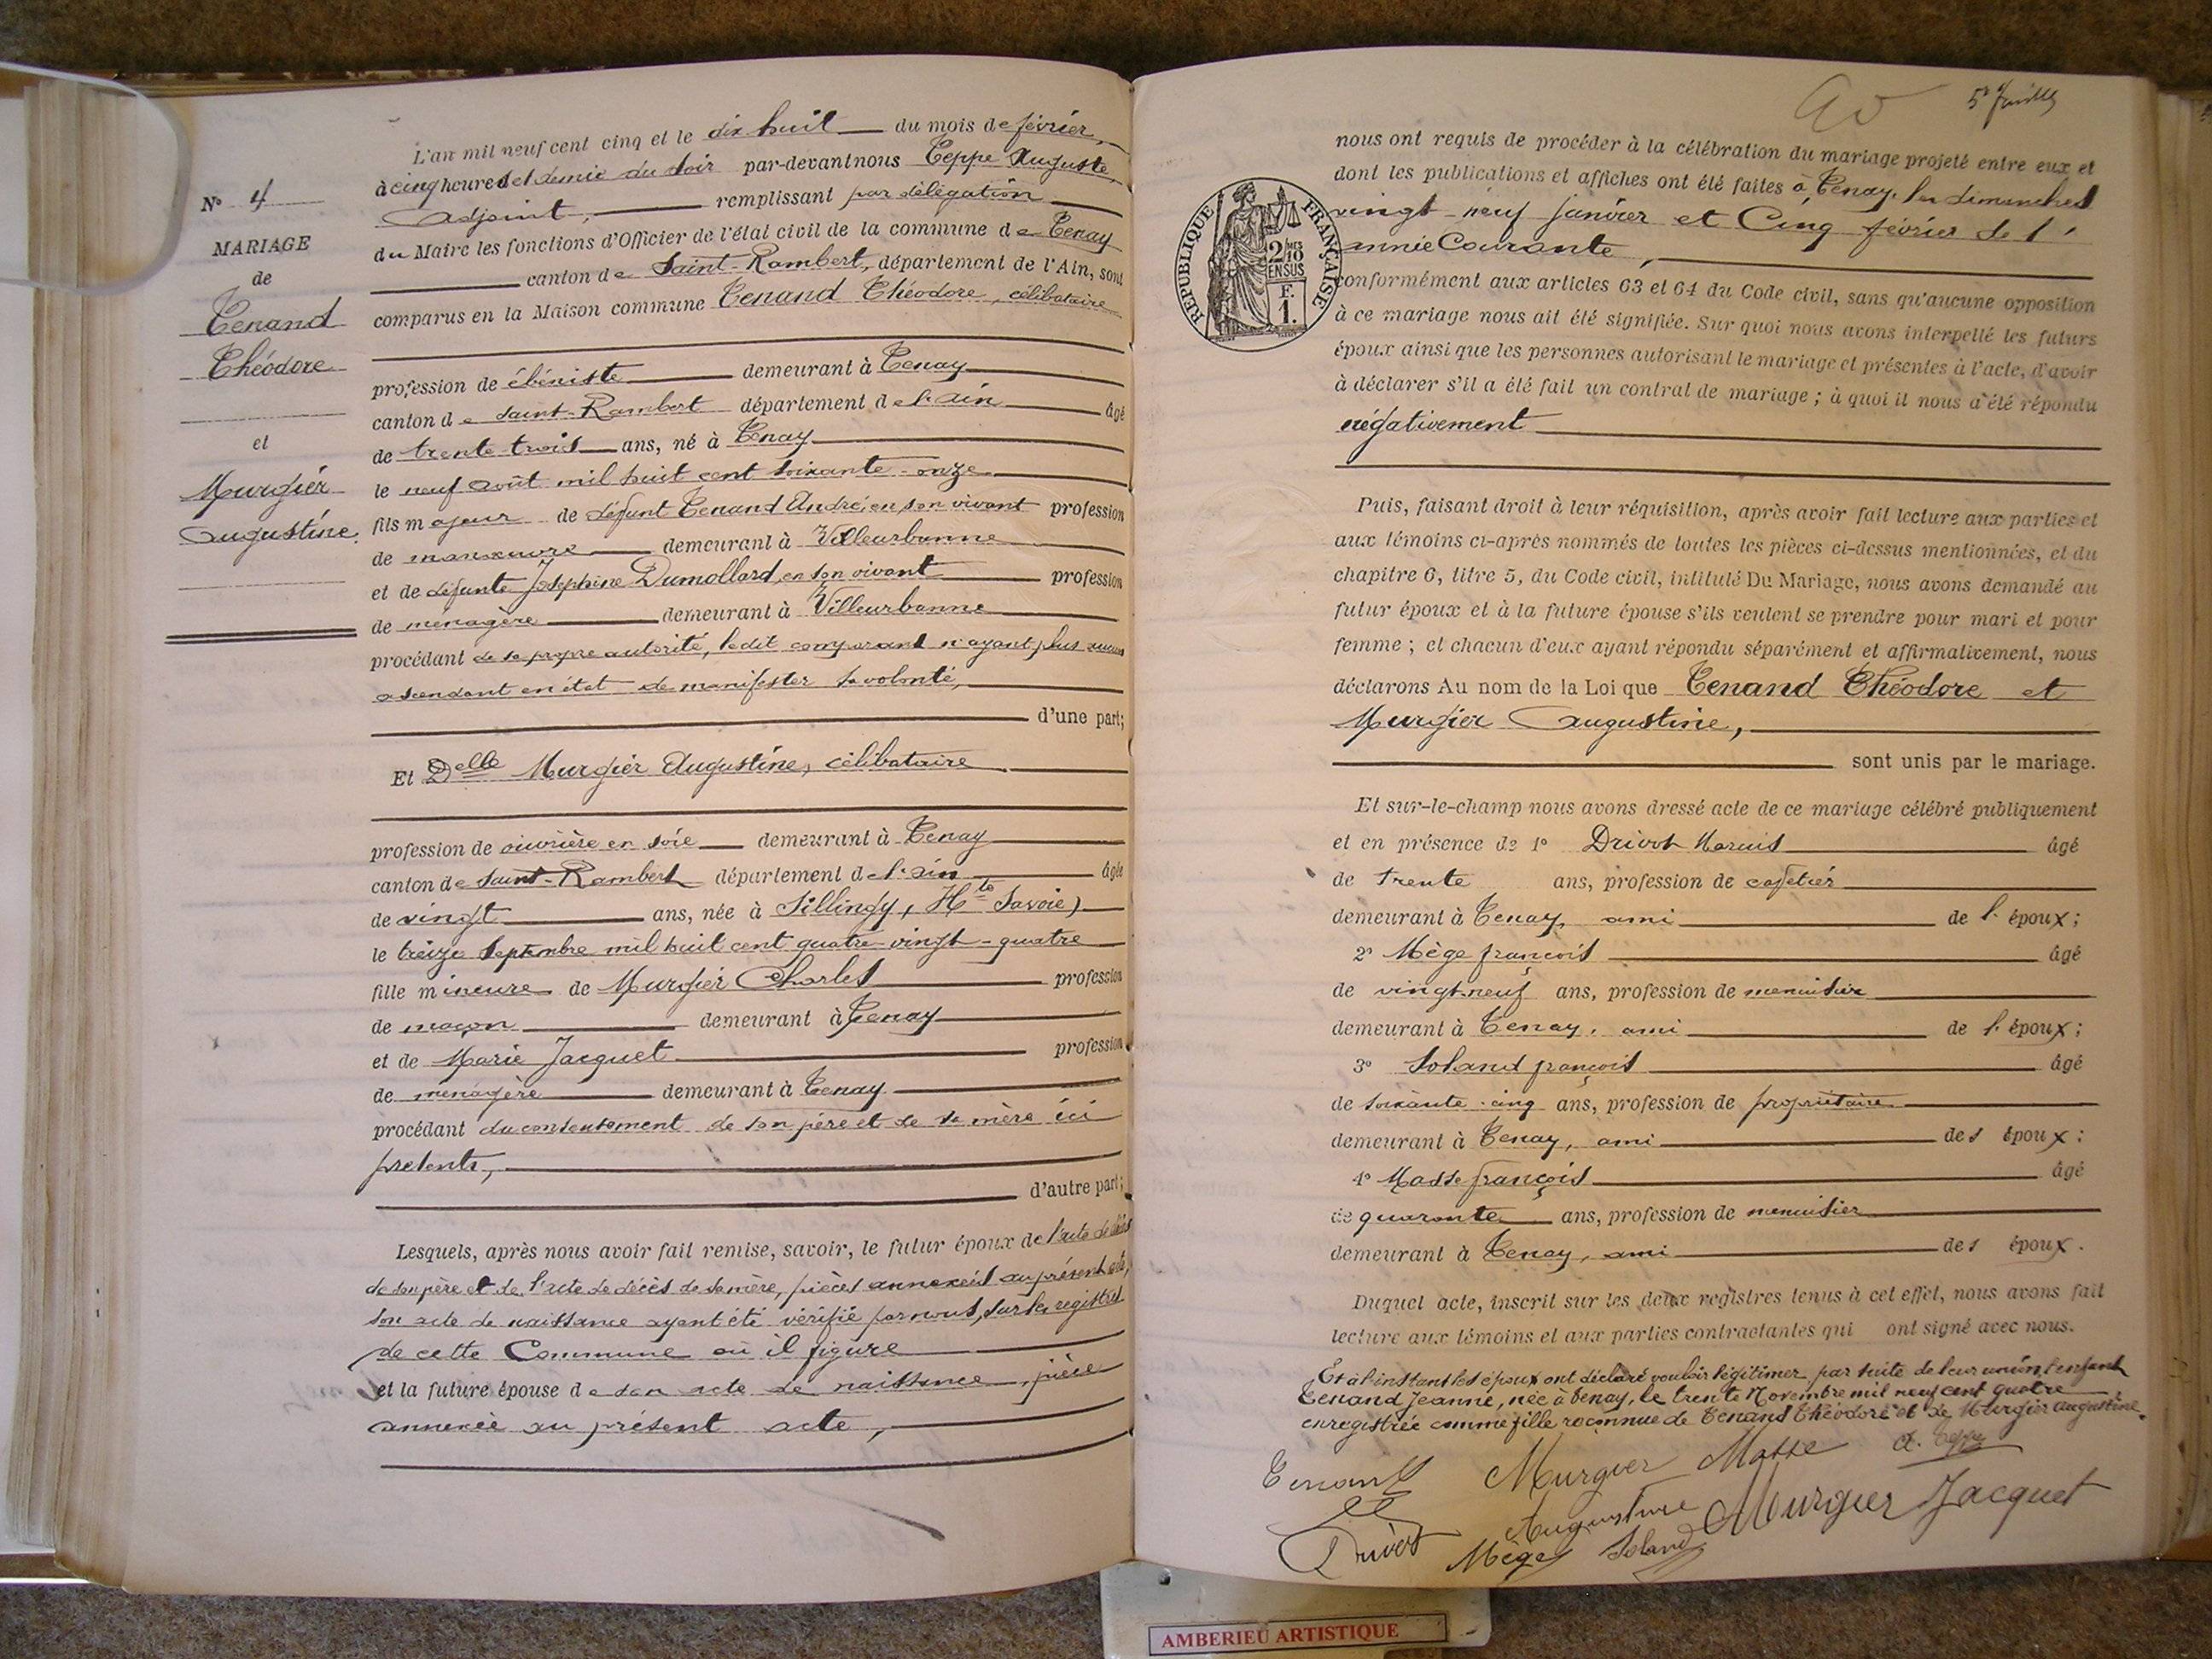 L'an mil neuf cent cinq et le dix huit du mois de février,
à cinq heures et demie du soir par-devant nous Teppe Auguste,
Adjoint, remplissant par délégation
du Maire les fonctions d'Officier de l'état civil de la commune de Tenay
canton de Saint-Rambert, département de l'Ain, sont
comparus en la Maison commune Tenand Théodore, célibataire
profession de ébéniste demeurant à Tenay
canton de Saint-Rambert département de l'Ain âgé
de trente trois ans, né à Tenay
le neuf août mil huit cent soixante-onze
fils majeur de défunt Tenand André, en son vivant profession
de manœuvre demeurant à Villeurbanne
et de défunte Joséphine Dumollard, en son vivant profession
de ménagère demeurant à Villeurbanne
procédant de sa propre autorité, ledit comparant n'ayant plus aucun
ascendant en état de manifester sa volonté,
d'une part;
Et Delle Murgier Augustine, célibataire
profession de ouvrière en soie demeurant à Tenay
canton de Saint-Rambert département de l'Ain âgée
de vingt ans, née à Sillingy, (Hte Savoie)
le treize Septembre mil huit cent quatre-vingt-quatre
fille mineure de Murgier Charles profession
de maçon demeurant à Tenay
et de Marie Jacquet profession
de ménagère demeurant à Tenay
procédant du consentement de son père et de sa mère ici
présents,
d'autre part;
Lesquels, après nous avoir fait remise, savoir, le futur époux de l'acte de décès
de son père et de l'acte de décès de sa mère, pièces annexées au présent acte,
son acte de naissance ayant été vérifié par nous, sur les registres
de cette Commune où il figure
et la future épouse de son acte de naissance, pièce
annexée au présent acte,
No 4
MARIAGE
de
Tenand
Théodore
et
Murgier
Augustine.
5e feuille
nous ont requis de procéder à la célébration du mariage projeté entre eux et
dont les publications et affiches ont été faites à Tenay, les dimanches
vingt-neuf janvier et Cinq février de l'
année Courante,
conformément aux articles 63 et 64 du Code civil, sans qu'aucune opposition
à ce mariage nous ait été signifiée. Sur quoi nous avons interpellé les futurs
époux ainsi que les personnes autorisant le mariage et présentes à l'acte, d'avoir
à déclarer s'il a été fait un contrat de mariage ; à quoi il nous a été répondu
négativement
RÉPUBLIQUE FRANÇAISE
2/10 MES
EN SUS
F.
1.
Puis, faisant droit à leur réquisition, après avoir fait lecture aux parties et
aux témoins ci-après nommés de toutes les pièces ci-dessus mentionnées, et du
chapitre 6, titre 5, du Code civil, intitulé Du Mariage, nous avons demandé au
futur époux et à la future épouse s'ils veulent se prendre pour mari et pour
femme ; et chacun d'eux ayant répondu séparément et affirmativement, nous
déclarons Au nom de la Loi que Tenand Théodore et
Murgier Augustine,
sont unis par le mariage.
Et sur-le-champ nous avons dressé acte de ce mariage célébré publiquement
et en présence de 1o Drivot Marius âgé
de trente ans, profession de cafetier
demeurant à Tenay, ami de l'époux;
2o Mège françois âgé
de vingt-neuf ans, profession de menuisier
demeurant à Tenay, ami de l'époux;
3o Soland françois âgé
de soixante-cinq ans, profession de propriétaire
demeurant à Tenay, ami des époux;
4o Masse françois âgé
de quarante ans, profession de menuisier
demeurant à Tenay, ami des époux.
Duquel acte, inscrit sur les deux registres tenus à cet effet, nous avons fait
lecture aux témoins et aux parties contractantes qui ont signé avec nous.
Et à l'instant les époux ont déclaré vouloir légitimer, par suite de leur union, l'enfant
Tenand Jeanne, née à Tenay, le trente Novembre mil neuf cent quatre
enregistrée comme fille reconnue de Tenand Théodore et de Murgier Augustine.
Tenand Murgier Masse A. Teppe
Augustine Murgier Jacquet
Drivot Mège Soland
AMBERIEU ARTISTIQUE